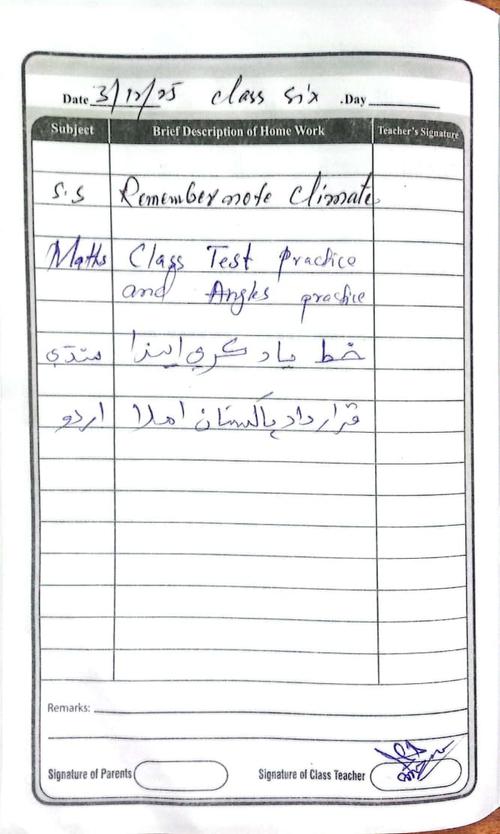 Date 3/12/25 class six .Day
Subject Brief Description of Home Work Teacher's Signature
S.S Remember note Climate
Maths Class Test practice
and Angles practice
سنڌي خط ياد ڪري ايندا
اردو قرارداد پاکستان املا
Remarks:
Signature of Parents Signature of Class Teacher